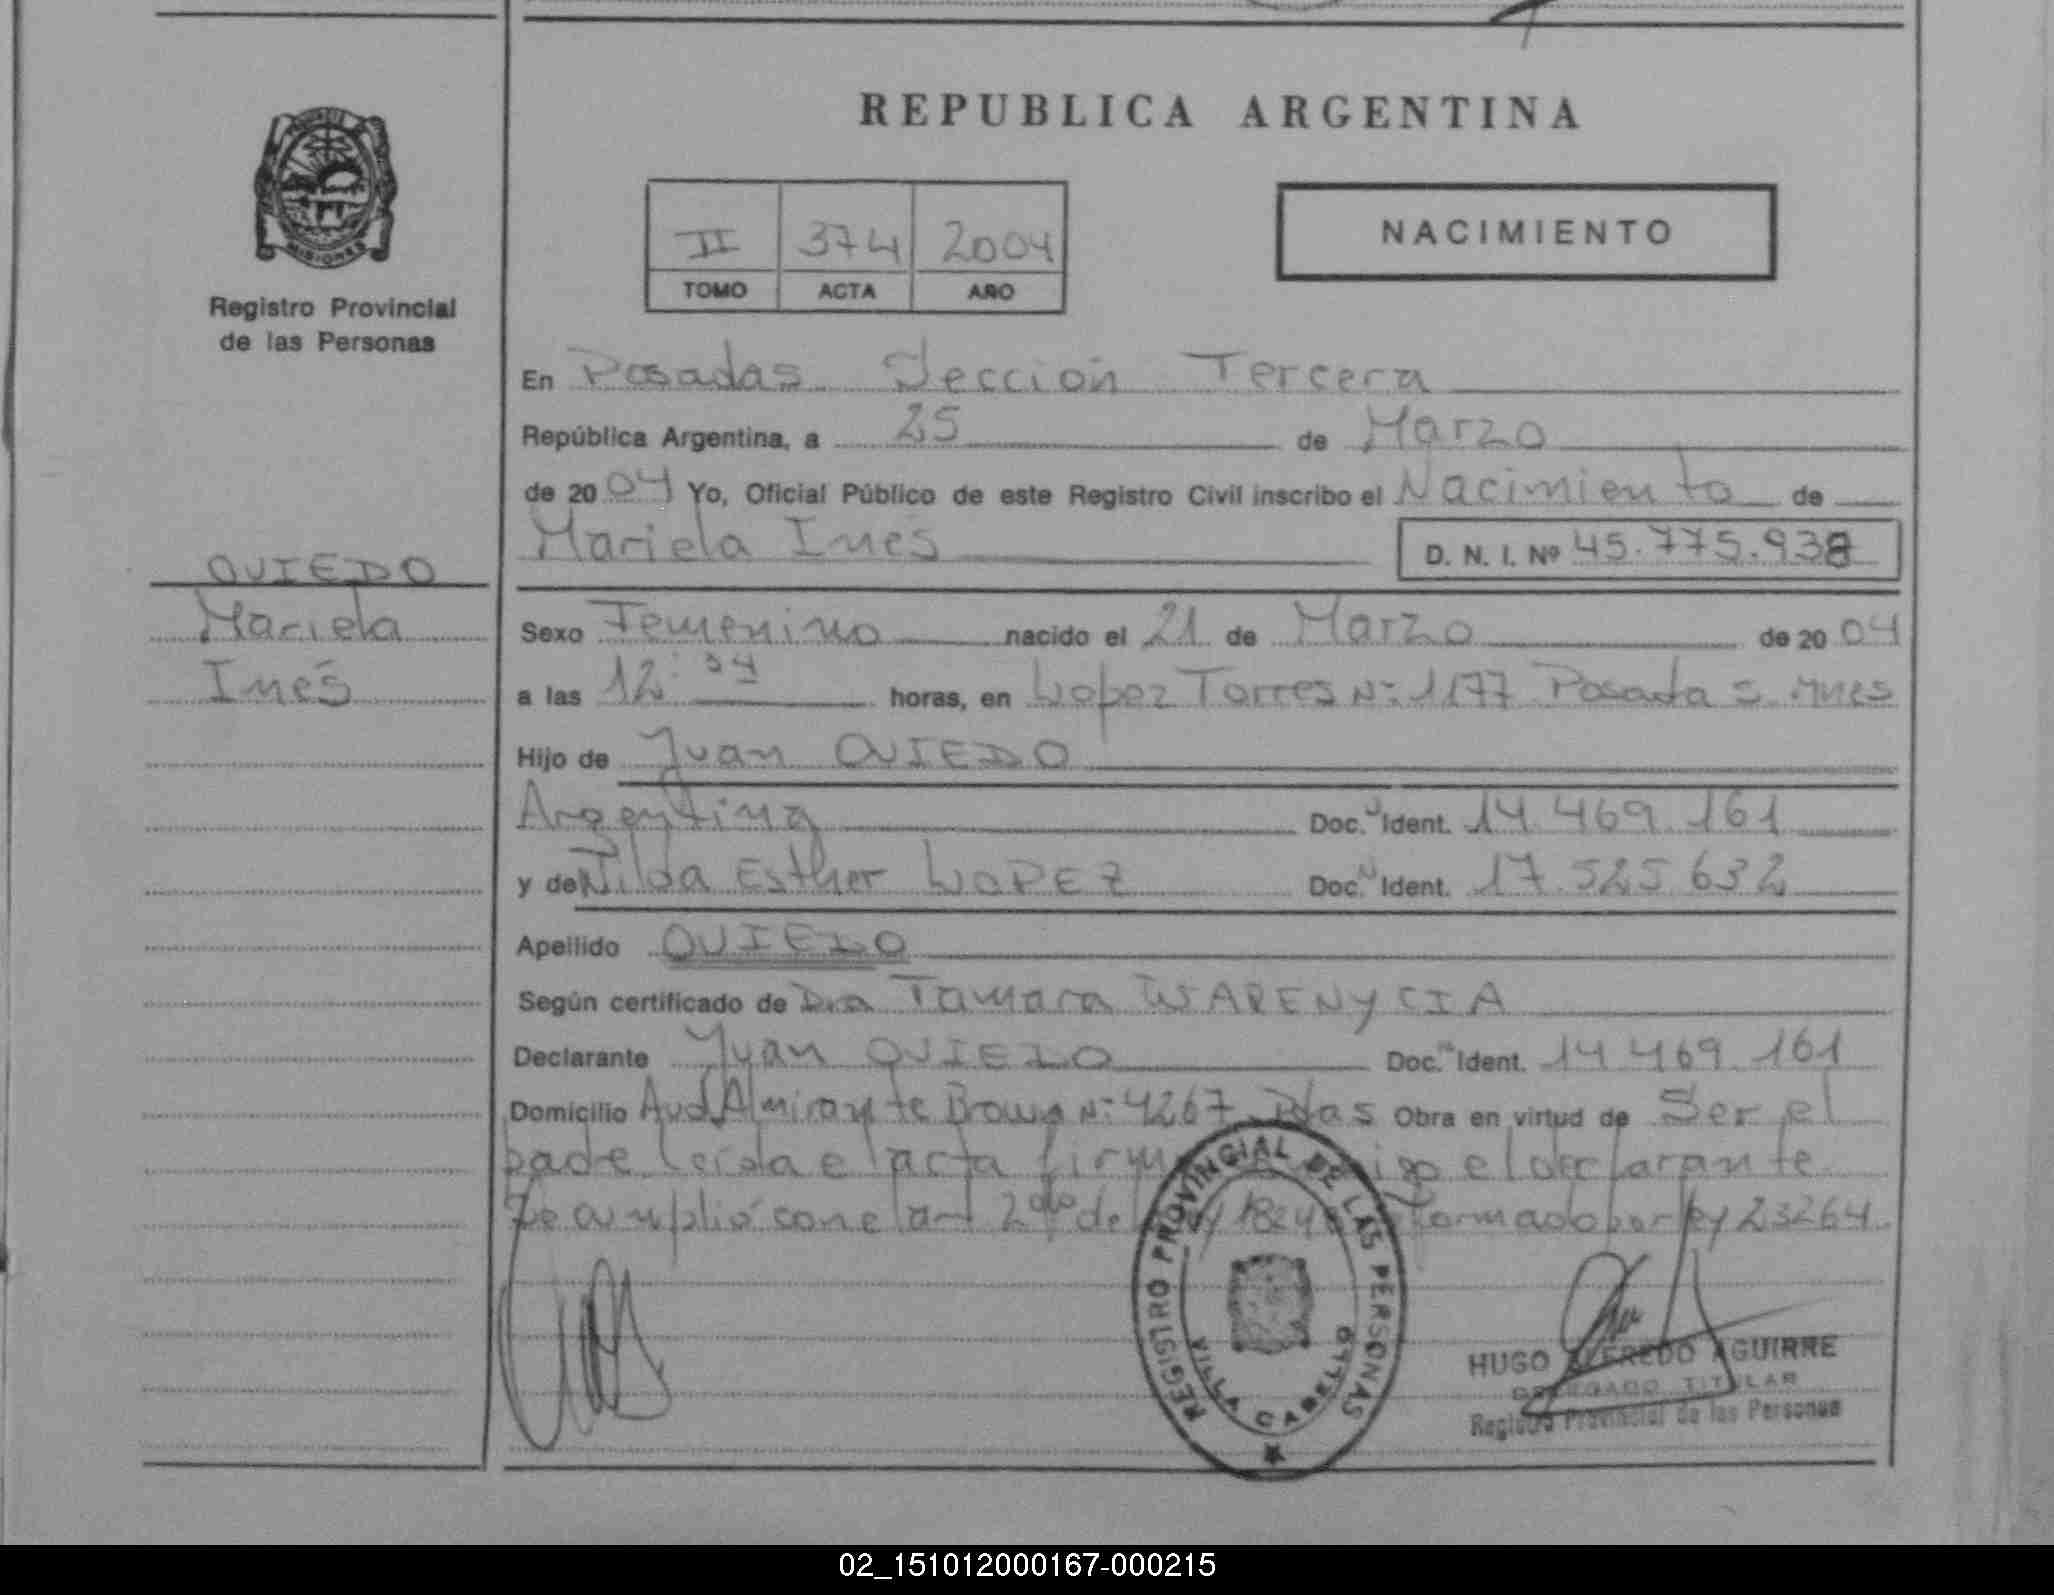 REPUBLICA ARGENTINA
MISIONES
Registro Provincial
de las Personas
II 374 2004
TOMO ACTA AÑO
NACIMIENTO
En Posadas Sección Tercera
República Argentina, a 25 de Marzo
de 2004 Yo, Oficial Público de este Registro Civil inscribo el Nacimiento de
Mariela Ines D. N. I. Nº 45.775.938
OVIEDO
Mariela
Inés
Sexo Femenino nacido el 21 de Marzo de 2004
a las 12:34 horas, en Lopez Torres Nº 1177 Posadas
Hijo de Juan OVIEDO
Argentina Doc. Ident. 14.469.161
y de Nilda Esther LOPEZ Doc. Ident. 17.525.632
Apellido OVIEDO
Según certificado de Dra Tamara WARENYCIA
Declarante Juan OVIEDO Doc. Ident. 14.469.161
Domicilio Avd Almirante Brown Nº 4267 Pdas Obra en virtud de Ser el
padre Leída el acta el declarante
Se cumplió con el art 2do de por ley 23264
REGISTRO PROVINCIAL DE LAS PERSONAS
VILLA CABELLO
HUGO ALFREDO AGUIRRE
DELEGADO TITULAR
Registro Provincial de las Personas
02_151012000167-000215